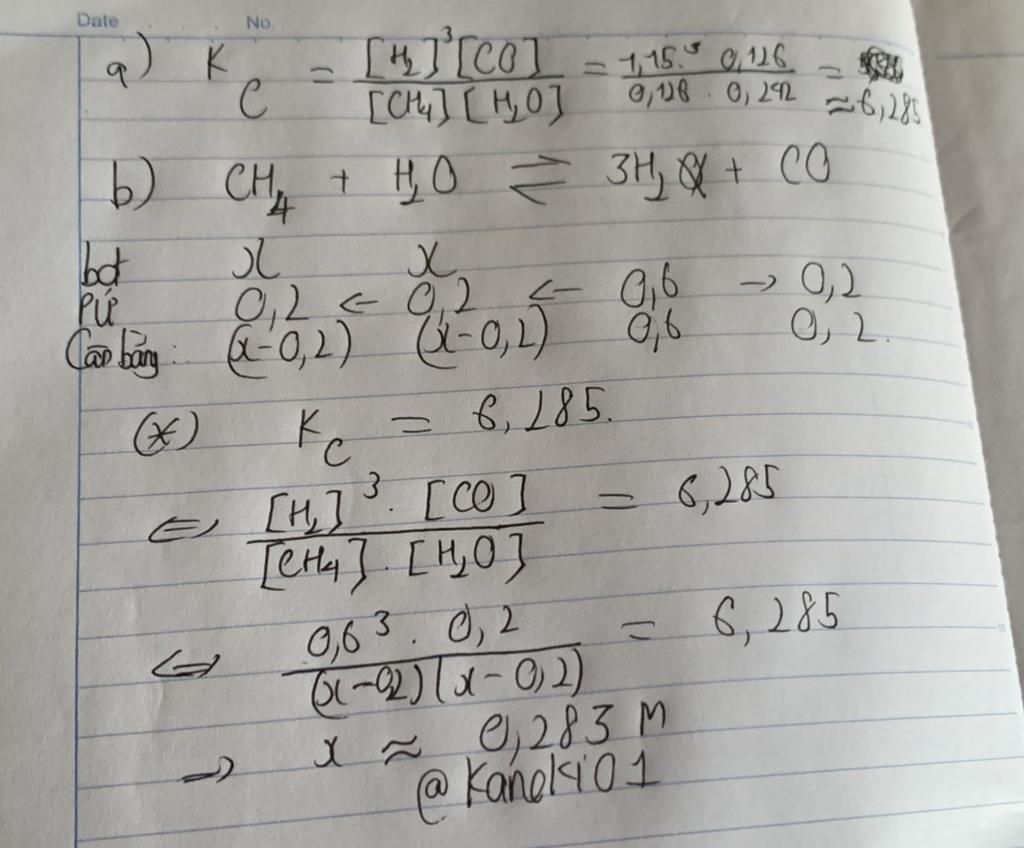 Date No.
a) K_C = [H₂]³[CO] / [CH₄][H₂O] = 1,15.³ 0,126 / 0,128 . 0,242 = ≈ 6,285
b) CH₄ + H₂O ⇌ 3H₂ + CO
bđ x x
PỨ 0,2 ← 0,2 ← 0,6 → 0,2
Cân bằng: (x-0,2) (x-0,2) 0,6 0,2.
(*) K_C = 6,285.
⇔ [H₂]³ . [CO] / [CH₄] . [H₂O] = 6,285
⇔ 0,6³ . 0,2 / (x-0,2)(x-0,2) = 6,285
→ x ≈ 0,283 M
@Kaneki01